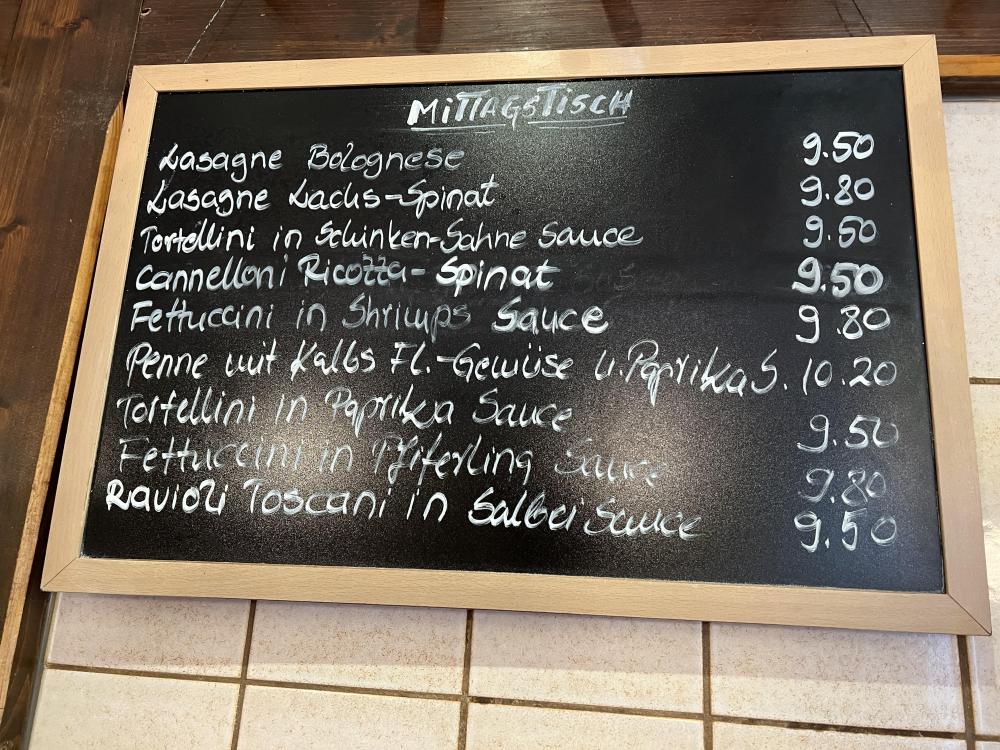 MITTAGSTISCH
Lasagne Bolognese 9.50
Lasagne Lachs-Spinat 9.80
Tortellini in Schinken-Sahne Sauce 9.50
Cannelloni Ricotta-Spinat 9.50
Fettuccini in Shrimps Sauce 9.80
Penne mit Kalbs Fl.-Gemüse u. Paprika S. 10.20
Tortellini in Paprika Sauce 9.50
Fettuccini in Pfiferling Sauce 9.80
Ravioli Toscani in Salbei Sauce 9.50